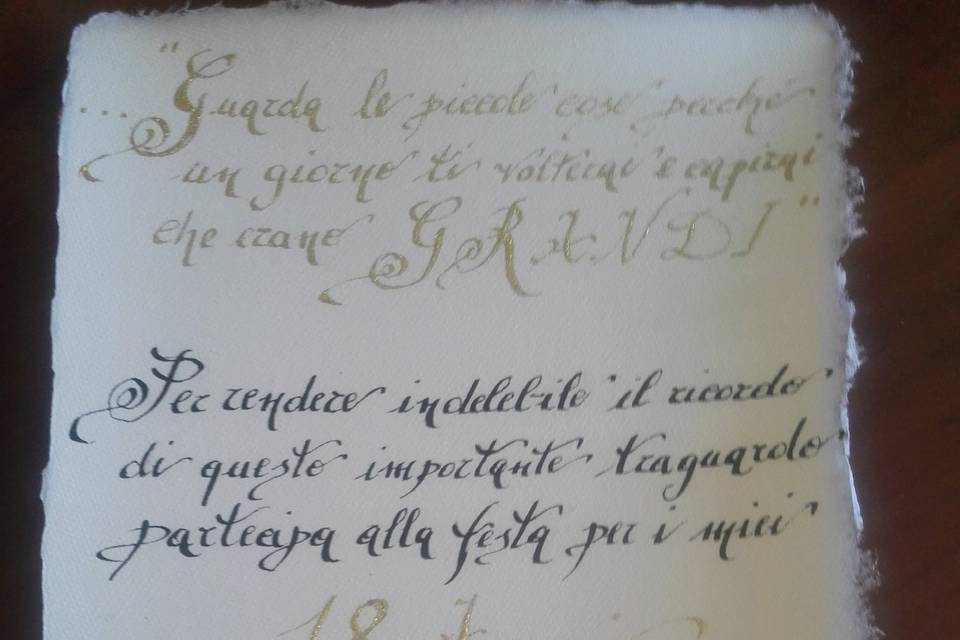 ... "Guarda le piccole cose perché
un giorno ti volterai e capirai
che erano GRANDI"
Per rendere indelebile il ricordo
di questo importante traguardo
partecipa alla festa per i miei
18